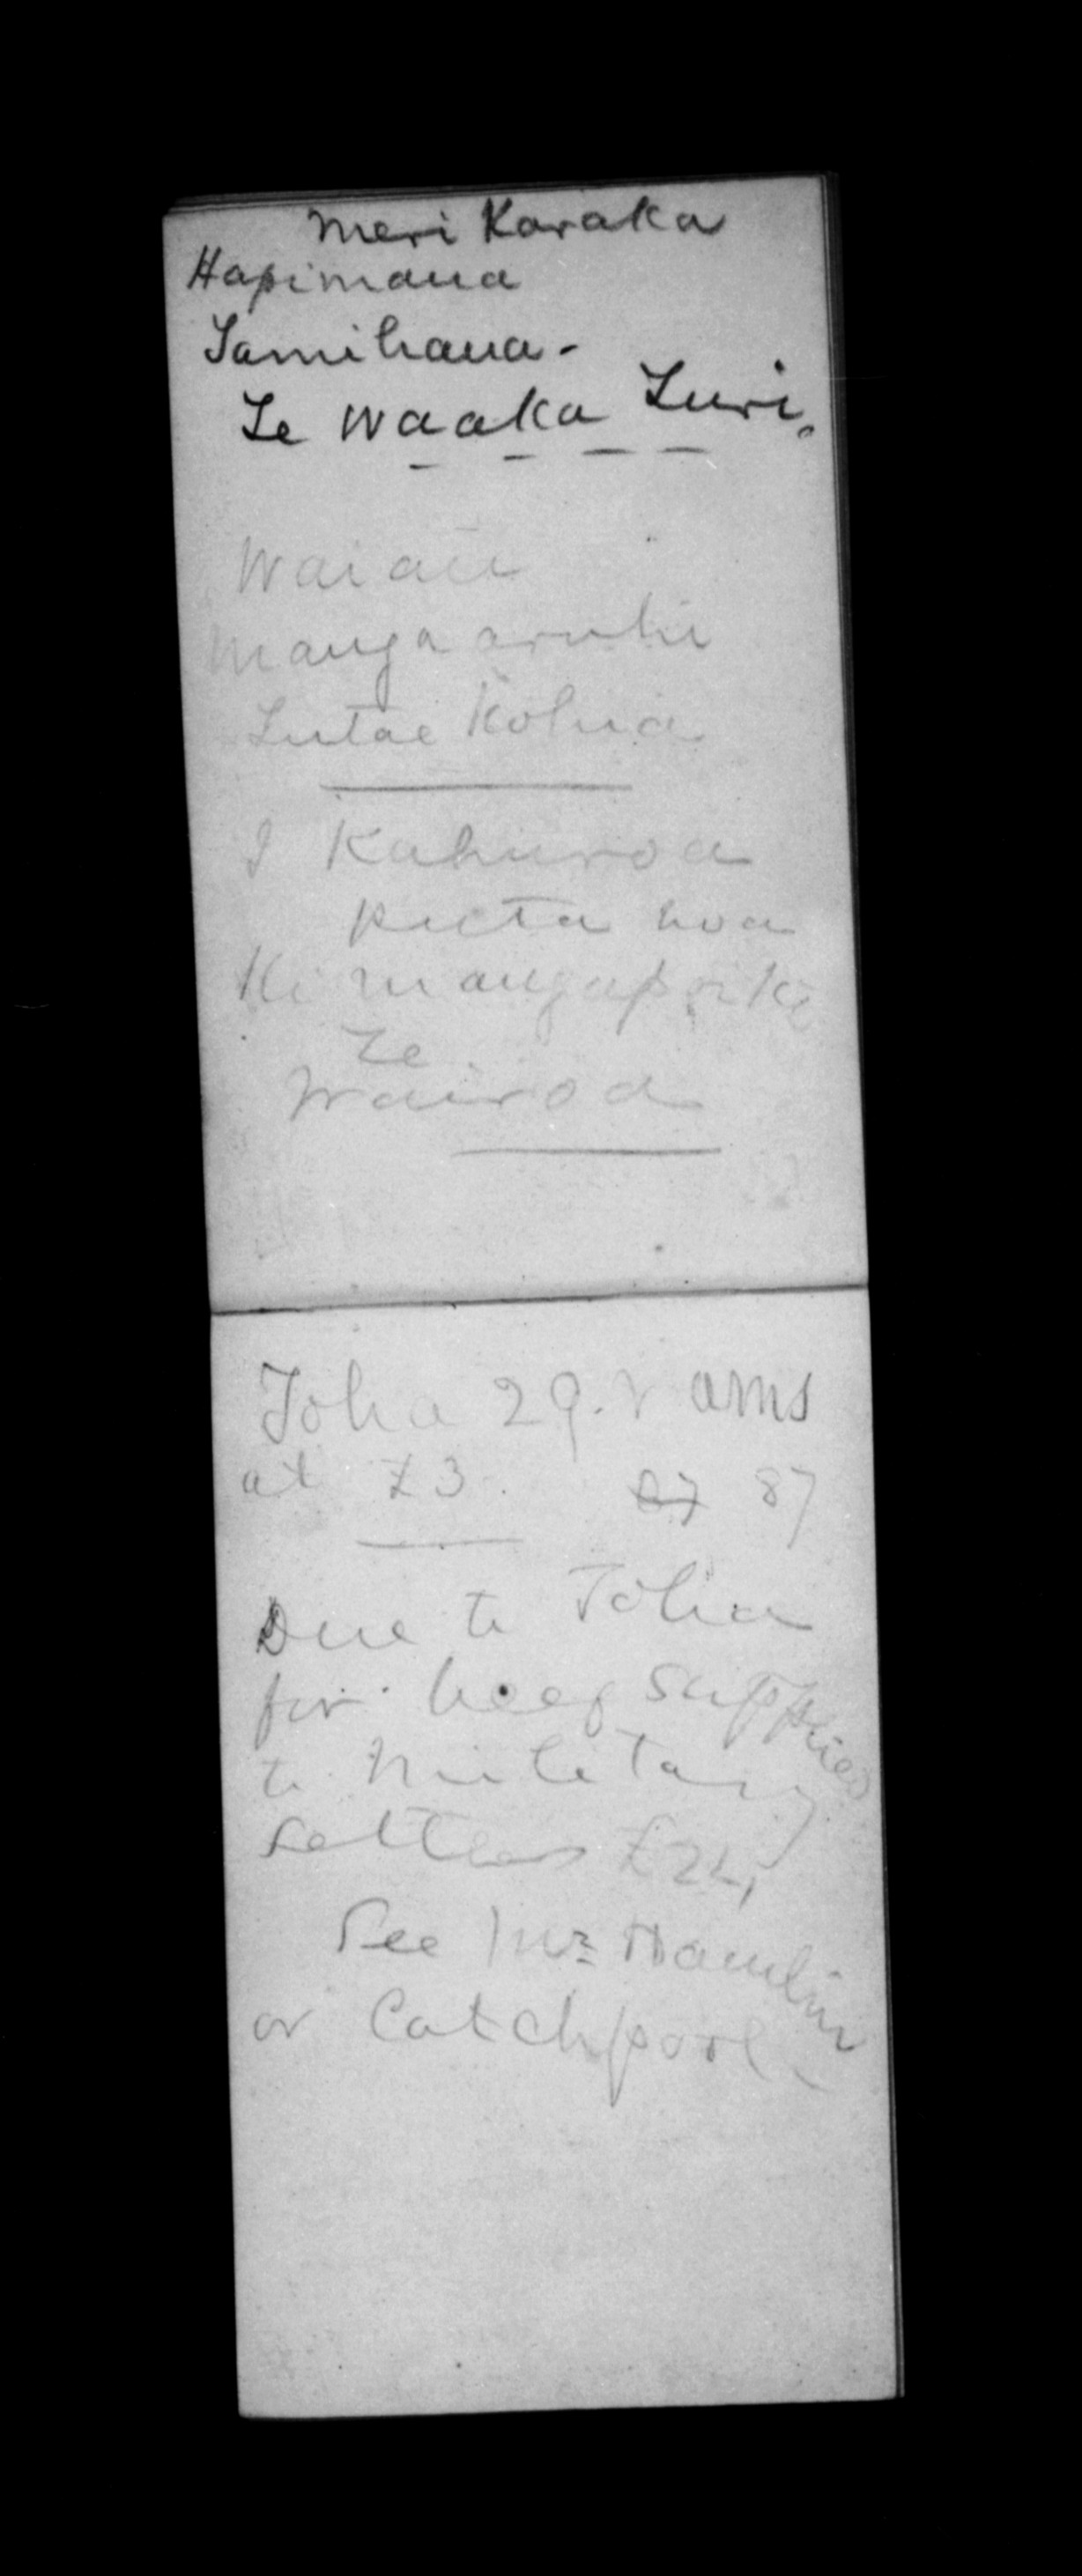 Meri Karaka
Hapimana
Tamihana -
Te Waaka Turi.
Waiau
Mangaaruhe
Tutae Kohua
I Kahuroa
puta noa
Ki Mangapoike
Te
Wairoa
Toha 29. rams
at £3. 87 87
Due to Toha
for beef supplies
to Military
Settlers £24,
See Mr Hamlin
or Catchpool -